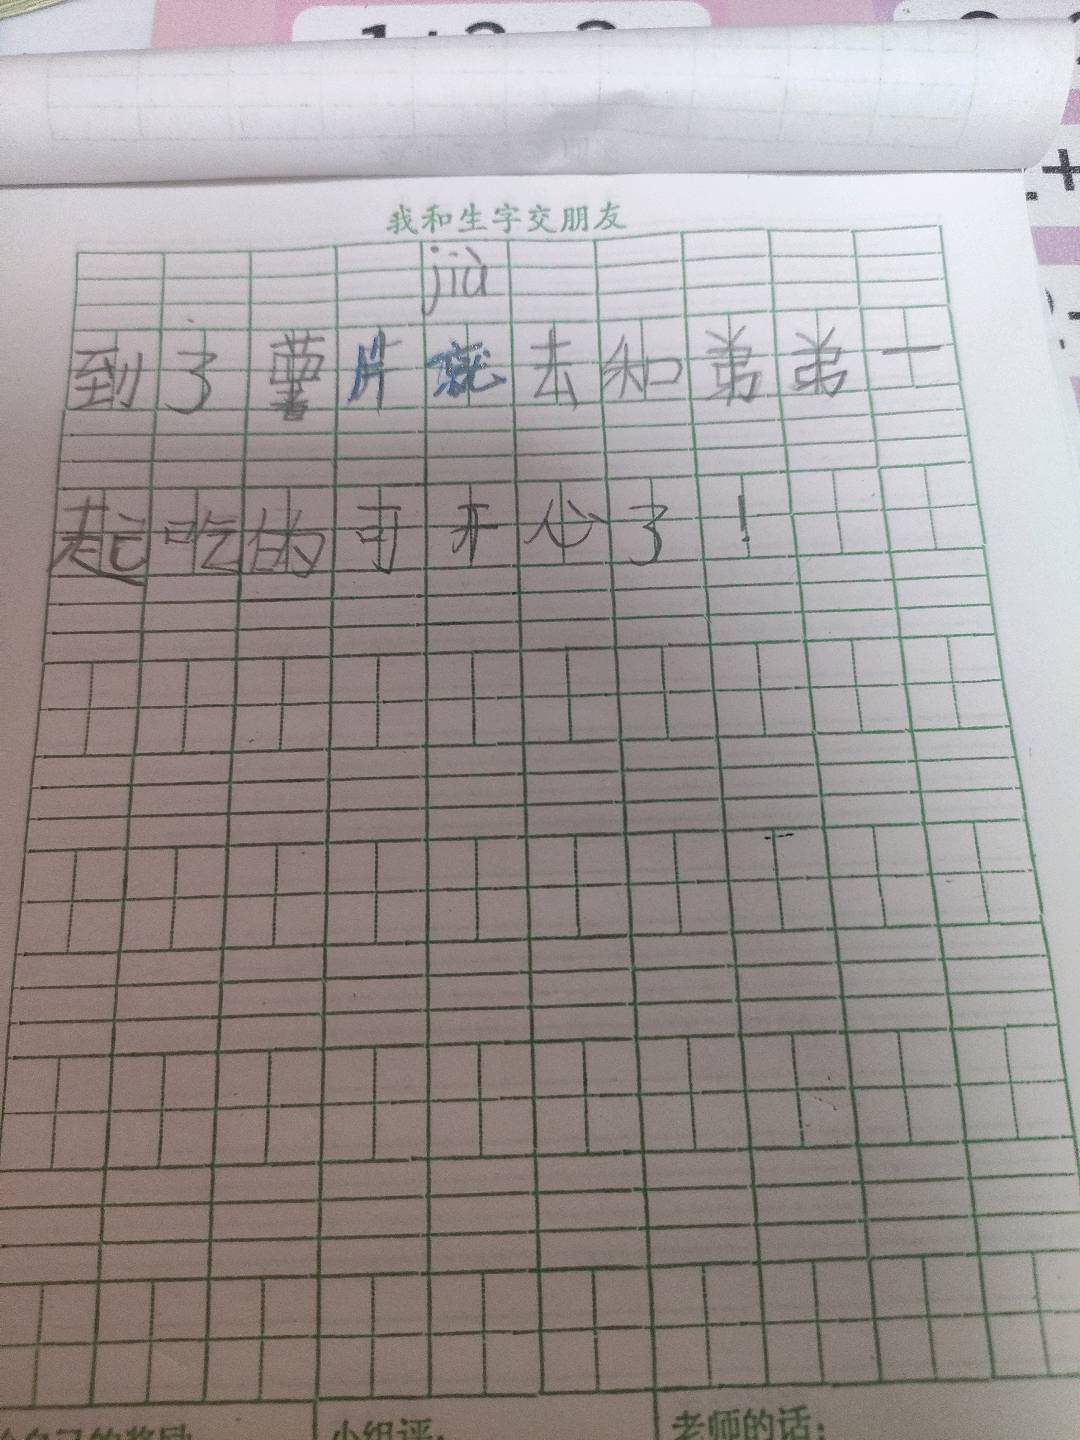 我和生字交朋友
jiù
到了薯片就去和弟弟一
起吃的可开心了！
小组评:
老师的话: